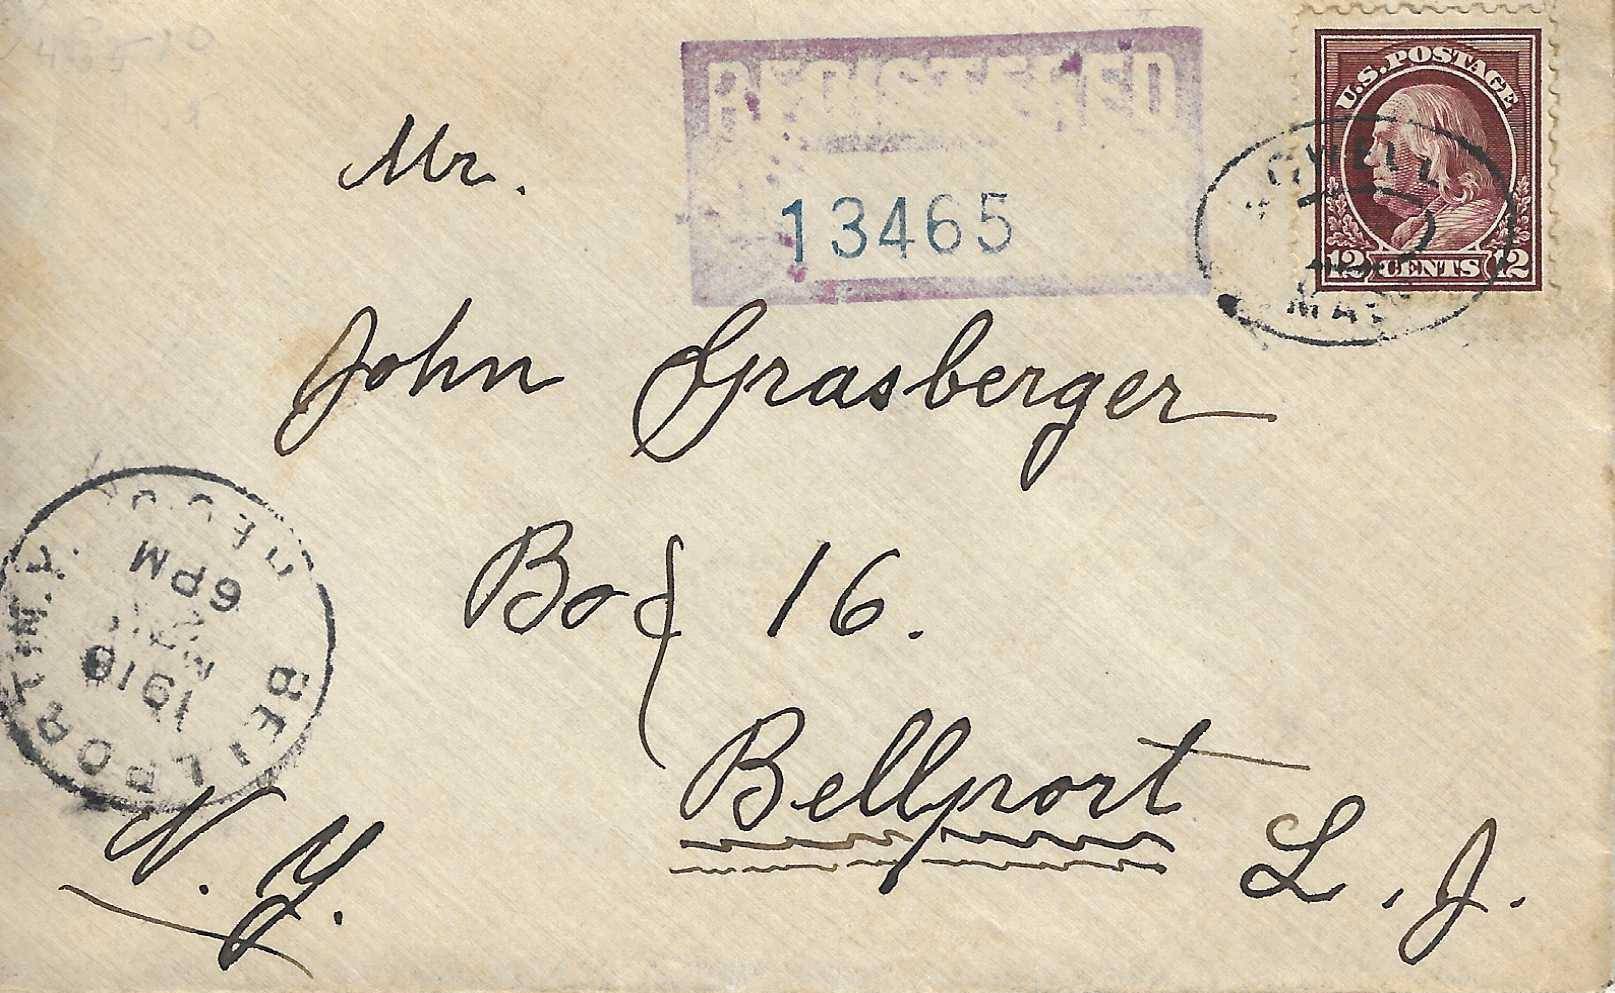 REGISTERED
13465
U.S. POSTAGE
12 CENTS 12
MASS
Mr.
John Grasberger
Box 16.
Bellport
L. I.
N. Y.
BELLPORT N.Y.
REC'D.
6 PM
1918